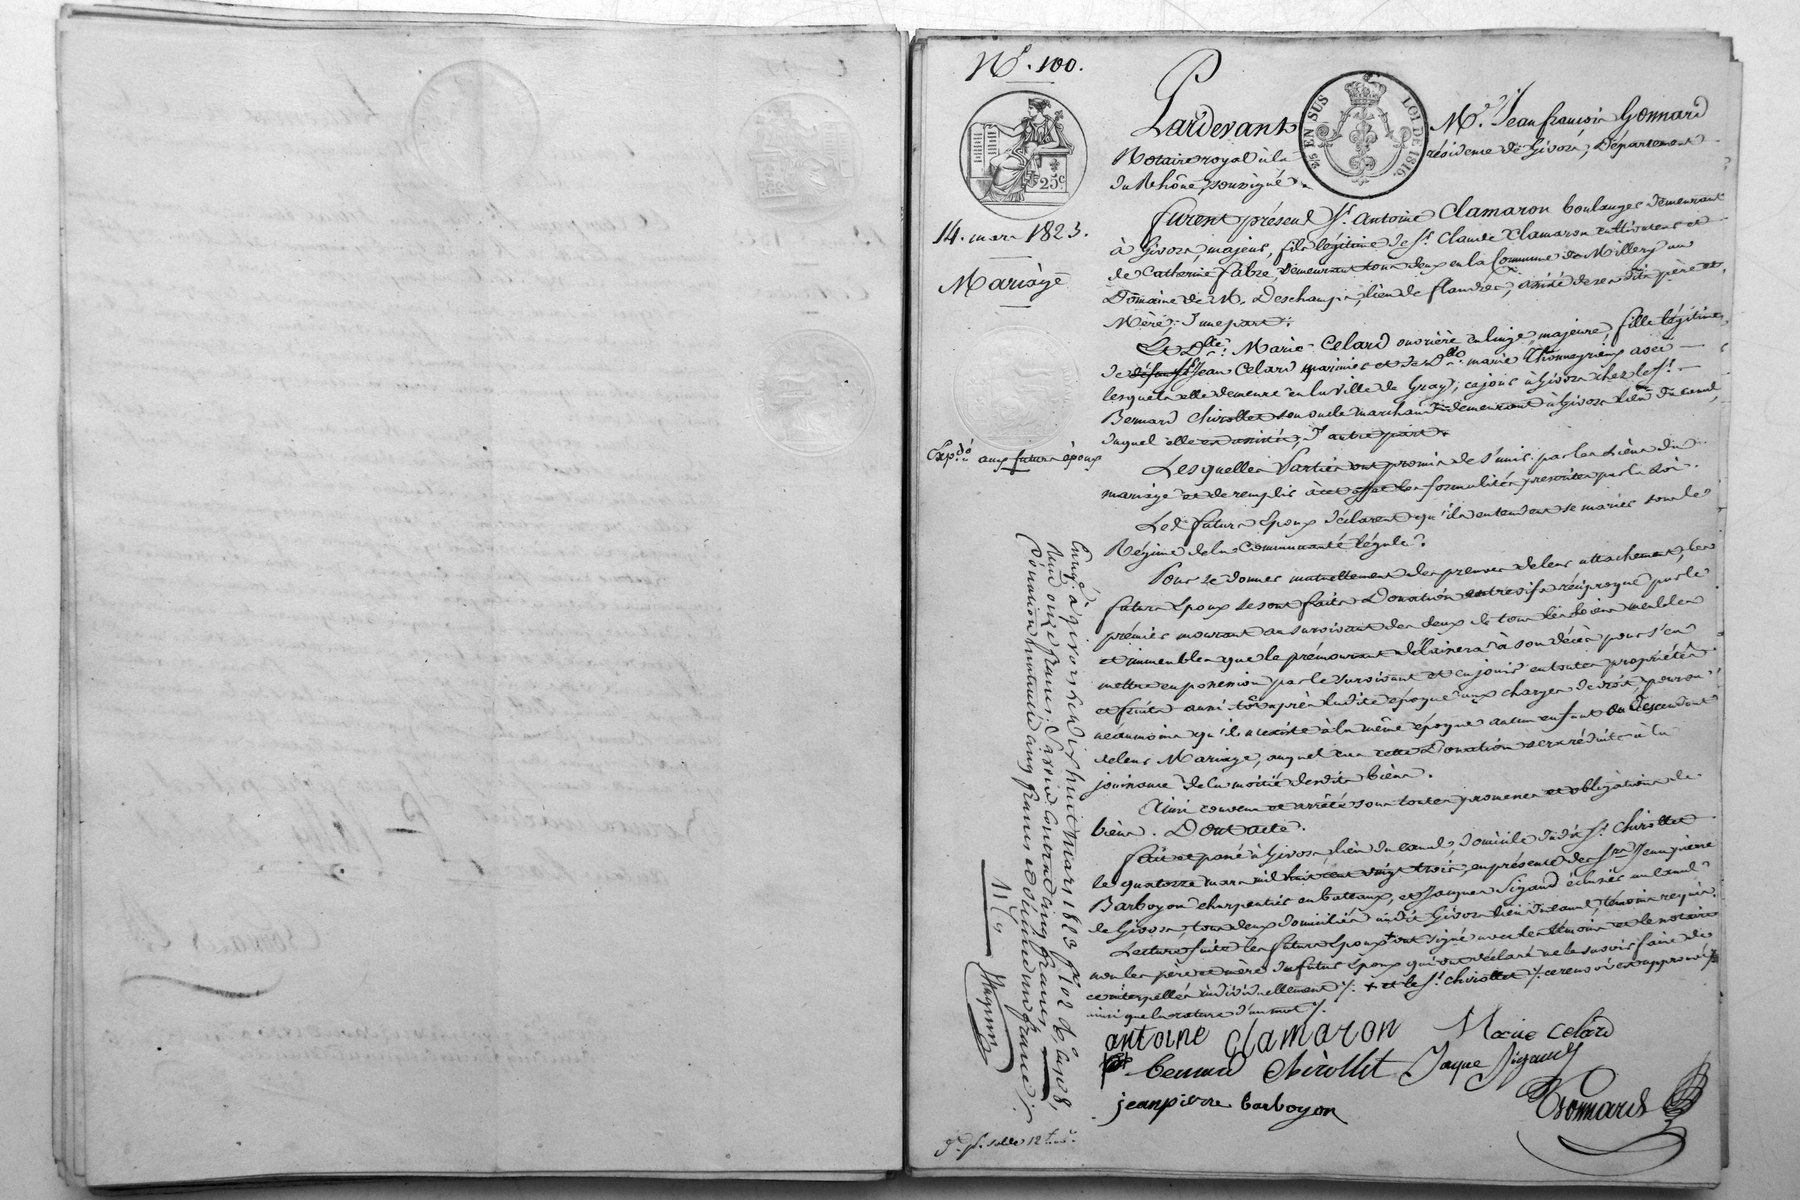 N.º 100.
Pardevant M.e Jean françois Gonnard
Notaire royal à la résidence de Givors, Département
du Rhône, soussigné.
2/5 EN SUS LOI DE 1816.
25c
14. mars 1823.
Mariage
furent présent S.r antoine Clamaron boulanger demeurant
à Givors, majeur, fils légitime de S.r Claude Clamaron cultivateur et
de Catherine fabre demeurant tous deux en la Commune de Millery au
Domaine de M. Deschamps, lieu de flandres, assisté de ses dits père et
Mère, d'une part.
Et D.lle Marie Celard ouvrière en linge, majeure, fille légitime
de défunt S.r Jean Celard marinier et de D.lle marie Thonnerieux avec
lesquels elle demeure en la ville de Gray, ce jour à Givors chez le S.r
Bernard Chirollet son oncle marchand demeurant à Givors lieu du canal,
duquel elle est assistée, d'autre part.
Expd.é aux futurs époux
Lesquelles Parties ont promis de s'unir par les Liens du
mariage et de remplir à cet effet les formalités prescrites par la Loi.
Les futurs Epoux déclarent qu'ils entendent se marier sous le
Régime de la Communauté légale.
Pour se donner mutuellement des preuves de leur attachement, les
futurs Epoux se sont faits Donation entrevifs réciproque par le
prémier mourant au survivant des deux de tous les biens meubles
et immeubles que le prémourant délaissera à son décès pour s'en
mettre en possession par le survivant et en jouir en toutes propriétés
et fruits aussi tôt après ladite époque aux charges de droit, pourvu
néanmoins qu'il n'existe à la même époque aucun enfant ou descendant
de leur Mariage, auquel cas cette Donation sera réduite à la
jouissance de la moitié desdits biens.
Ainsi convenu et arrêté sous toutes promesses et obligations de
biens. Dont acte.
fait et passé à Givors lieu du canal, domicile dudit S.r Chirollet
le quatorze mars mil huit cent vingt trois, en présence des S.rs Jean pierre
Barboyon charpentier en bateaux, et Jacques Sigaud éclusier au canal
de Givors, tous deux domiciliés audit Givors lieu du canal, témoins requis.
Lecture faite les futurs Epoux + ont signé avec les témoins et le notaire
non les père et mère du futur Epoux qui ont déclaré ne le savoir faire de
ce interpellés individuellement /. + et le S.r Chirollet /. ce renvoi est approuvé
ainsi que la rature d'un mot /.
antoine clamaron Marie Celard
bernard Chirollet Jaque Sigaud
jeanpierre barboyon Gonnard
Enreg.é à givors le dix huit Mars 1823 f.o 102 R.o
Reçu onze francs. Savoir Contrat cinq francs
Donation mutuelle cinq francs et dixième un franc